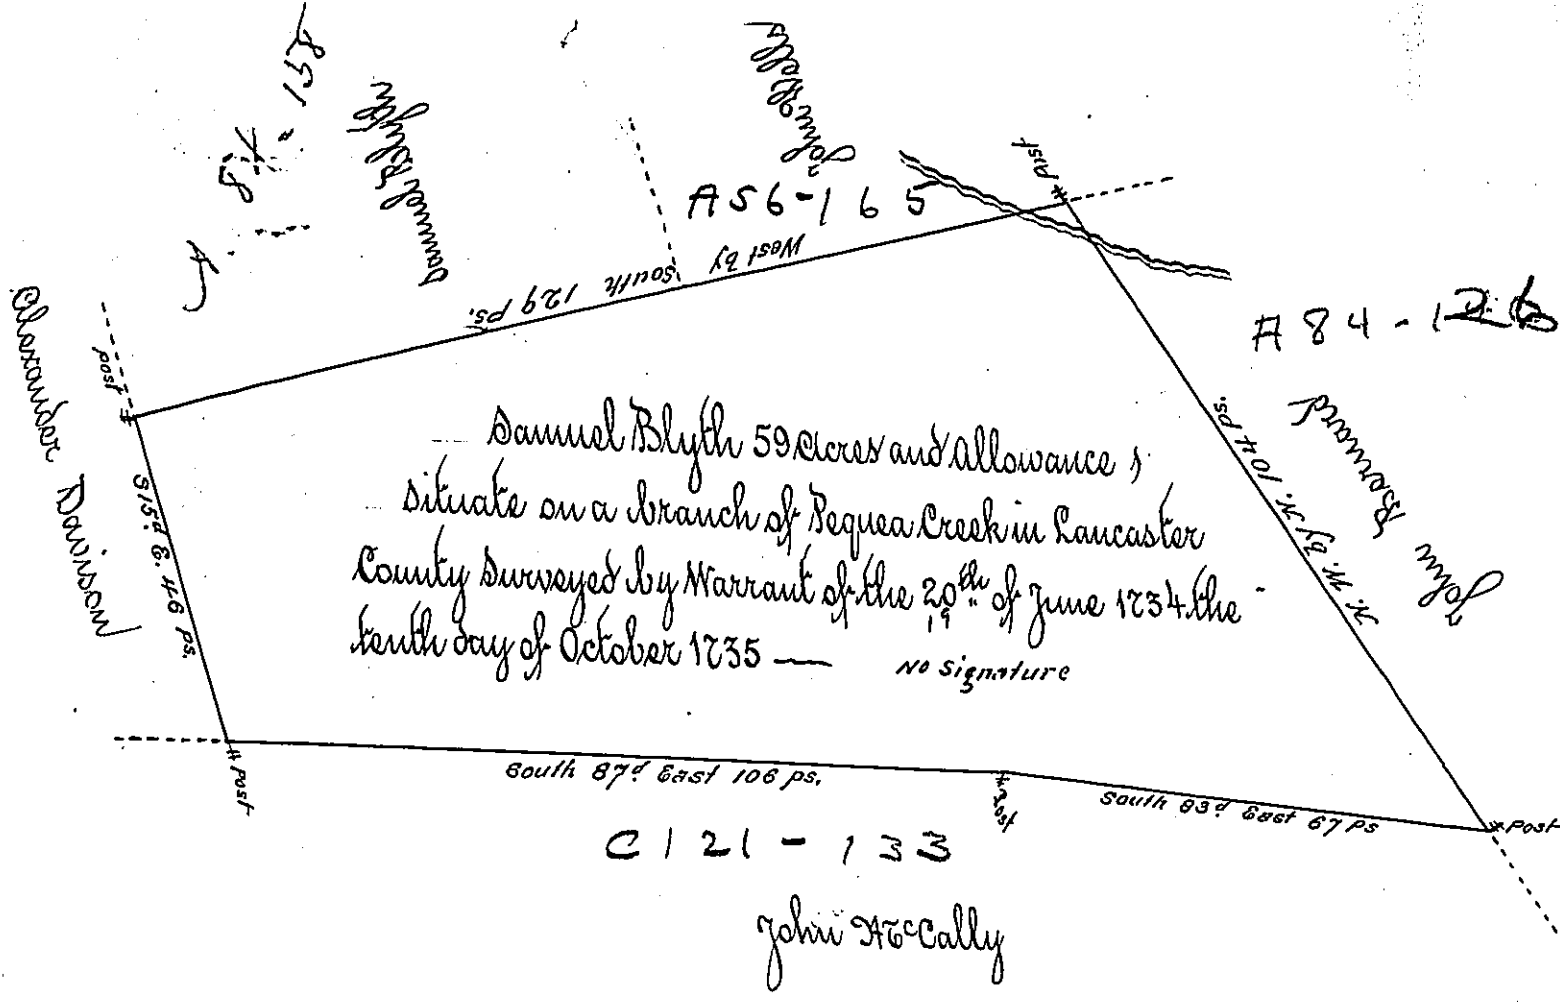 Samuel Blyth
John Kelly
A56-165
West by South 129 ps.
Post
A84-126
John Bernard
N. W. by N. 104 ps.
Alexander Davison
post
S 15d E. 46 ps.
Samuel Blyth 59 acres and allowance,
situate on a branch of Pequea Creek in Lancaster
County Surveyed by Warrant of the 20th of June 1734 the
19
tenth day of October 1735 —
No Signature
Post
South 87d East 106 ps.
Post
South 83d East 67 ps
Post
C121-133
John McCally